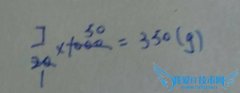 7/20 × 1000 = 350(g)
50
1